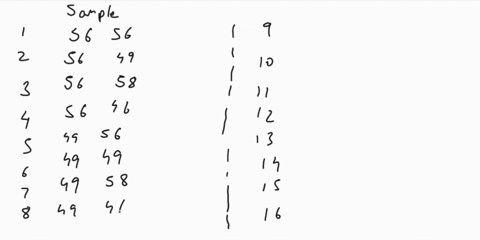 Sample
1 56 56
2 56 49
3 56 58
4 56 46
5 49 56
6 49 49
7 49 58
8 49 41
9
10
11
12
13
14
15
16